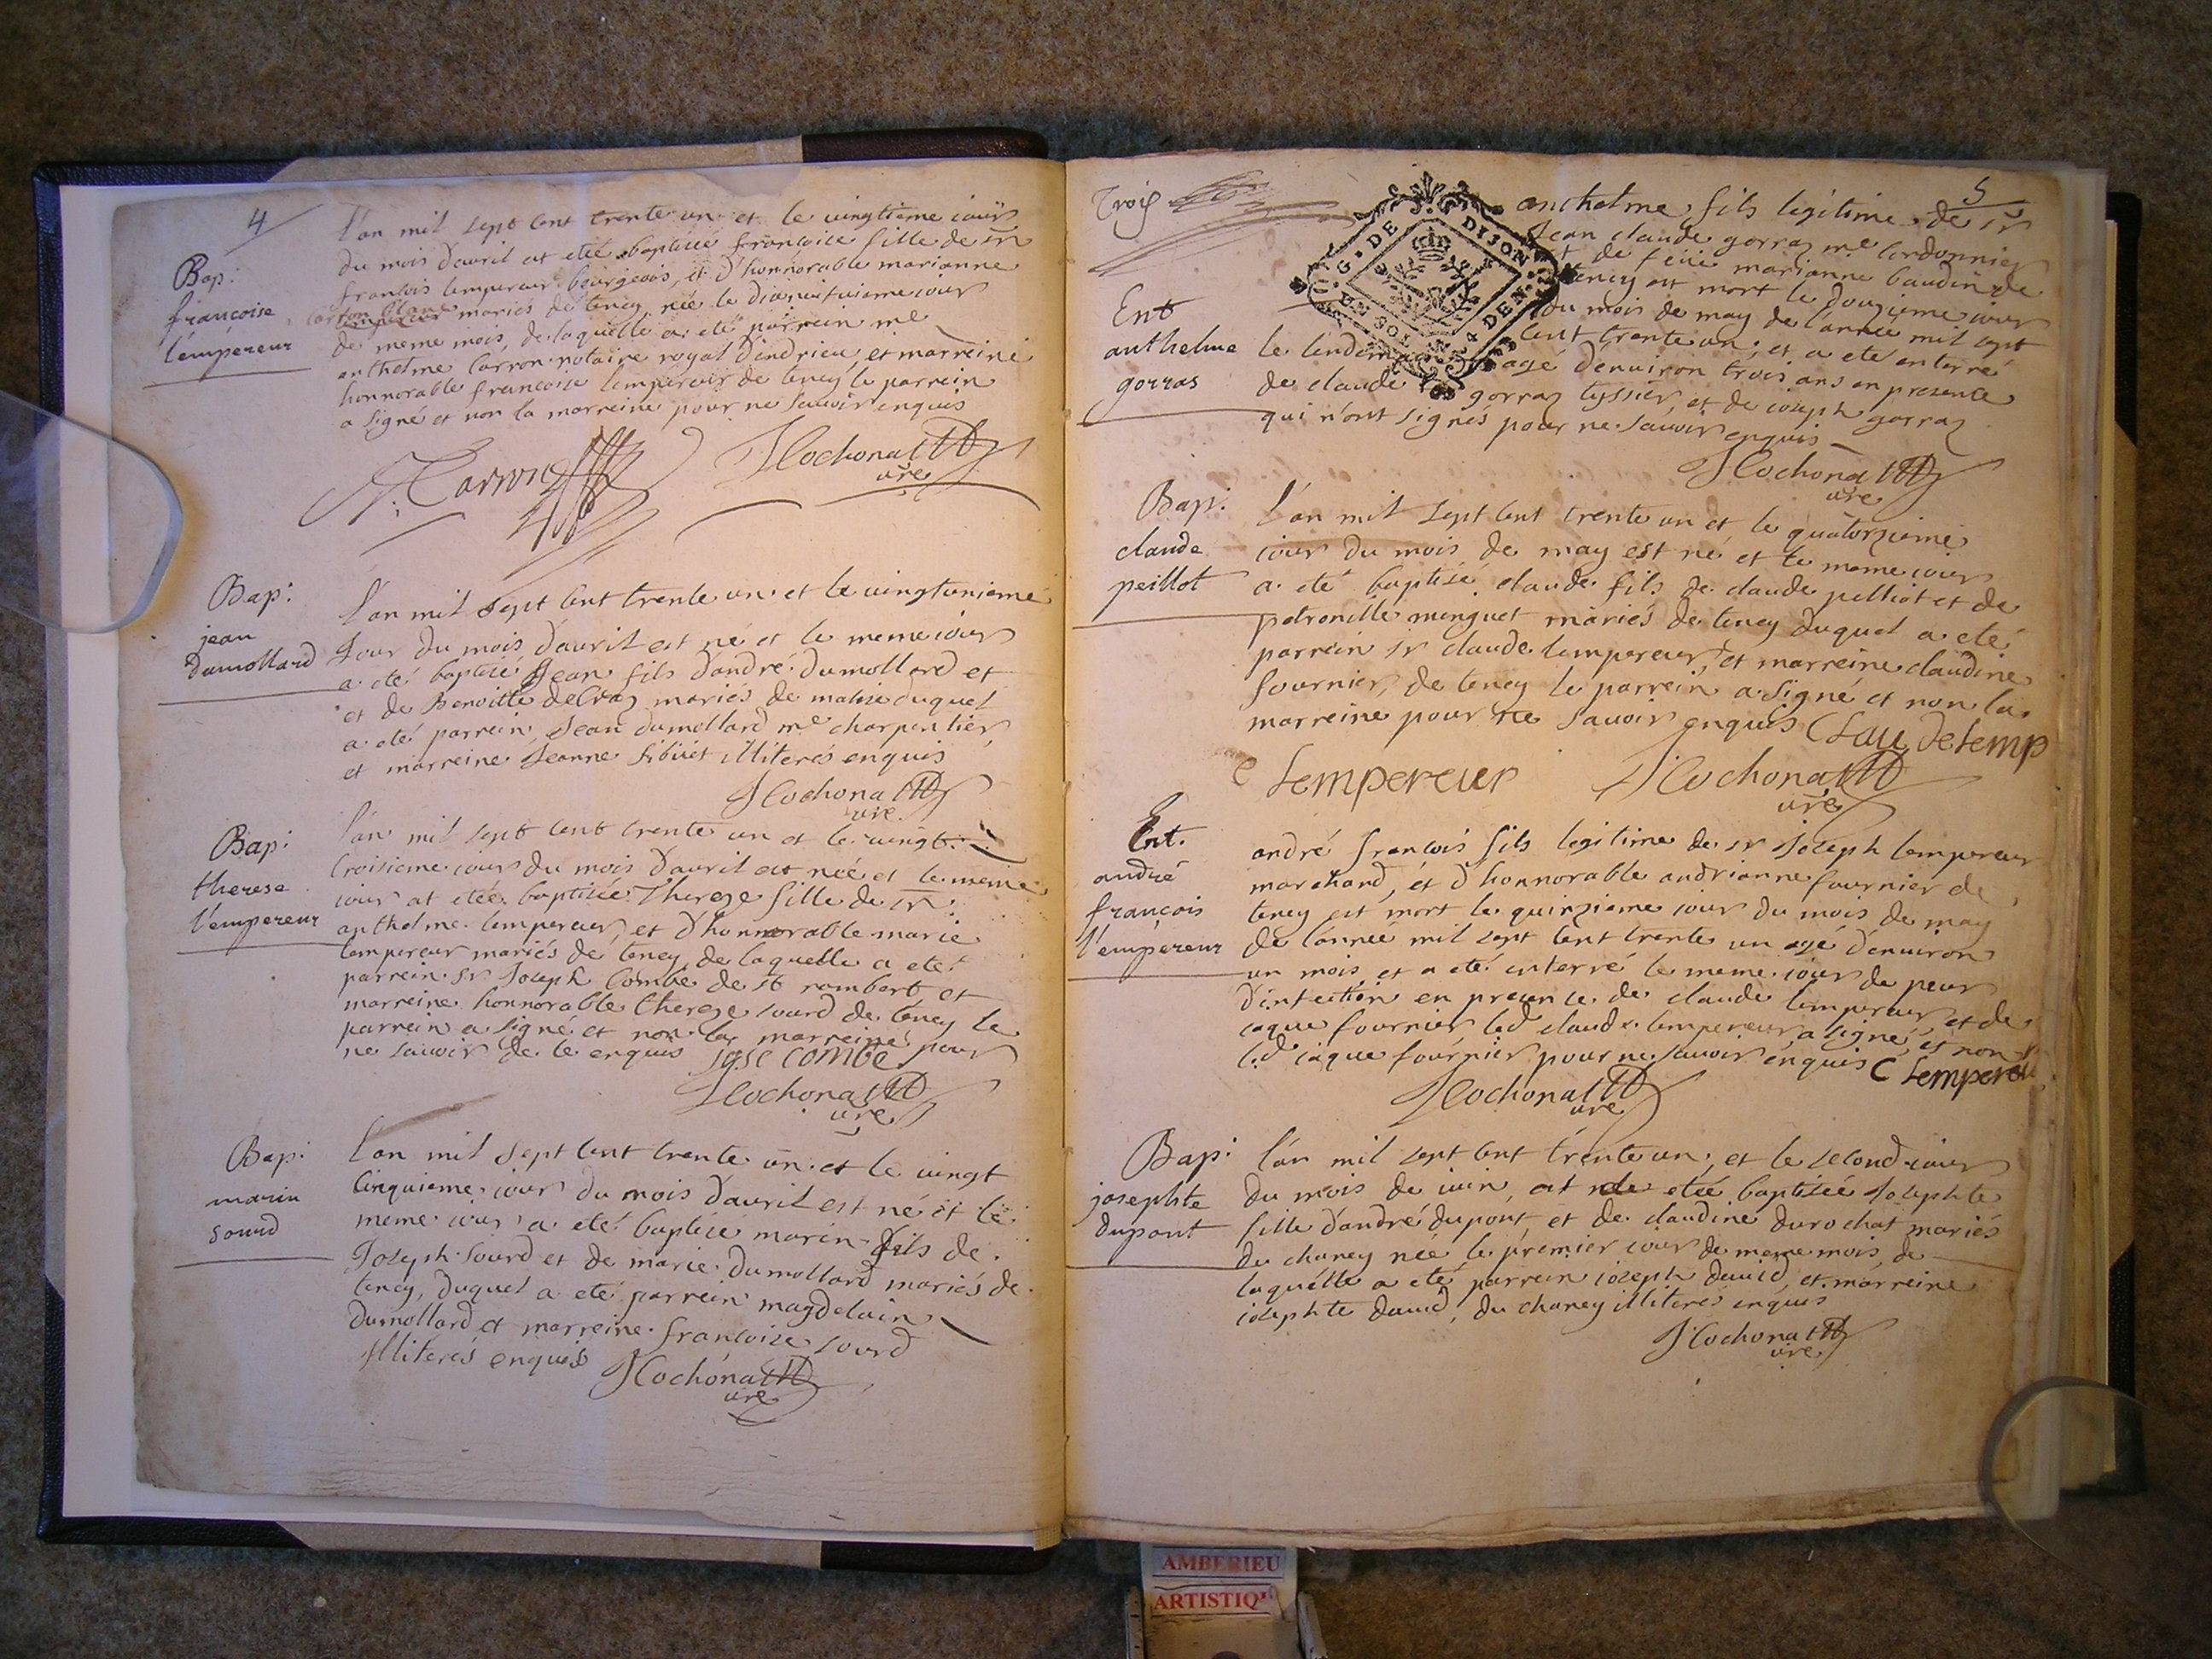 4
Bap:
francoise
l'empereur
l'an mil sept cent trente un et le vingtieme iour
du mois d'avril at eteé baptiseé francoise fille de sr
francois lempereur bourgeois, et d'honnorable marianne
carron blanc mariés de teney, neé le dixneufuieme iour
de meme mois, de laquelle a eté parrein me
anthelme carron notaire royal d'indrieu, et marreine
honnorable francoise lempereur de teney le parrein
a signé et non la marreine pour ne sauoir enquis
Carron
J Cochonat
Curé
Bap:
jean
dumollard
l'an mil sept cent trente un et le uingtunieme
Jour du mois d'avril est né et le meme iour
a eté baptisé Jean fils d'andré dumollard et
et de Benoitte delcraz mariés de malixe duquel
a eté parrein, Jean dumollard me charpentier,
et marreine Jeanne Sibüet illiterés enquis
J Cochonat
Curé
Bap:
therese
l'empereur
l'an mil sept cent trente un et le uingt
troisieme iour du mois d'avril at neé et le meme
iour at eteé baptiseé Thereze fille de sr
anthelme lempereur, et d'honnorable marie
lempereur mariés de teney, de laquelle a eté
parrein sr Joseph Combe de st rambert et
marreine honnorable thereze sourd de teney le
parrein a signé et non la marreine pour
ne sauoir de le enquis Jose combe
J Cochonat
Curé
Bap:
marin
sourd
l'an mil sept cent trente un et le uingt
cinquieme iour du mois d'avril est né et le
meme iour a eté baptisé marin fils de
Joseph Sourd et de marie dumollard mariés de
teney, duquel a eté parrein magdelain
dumollard et marreine francoise sourd
illiterés enquis
J Cochonat
Curé
Trois
5
G. DE DIJON
Ent
anthelme
gorras
anthelme fils légitime de sr
Jean claude gorraz me cordonnier
et de feüe marianne baudin de
teney est mort le douzieme iour
du mois de may de l'année mil sept
cent trente un, et a eté enterré
le lendemain agé d'enuiron trois ans en presence
de claude gorraz tyssier, et de ioseph gorraz
qui n'ont signés pour ne sauoir enquis
J Cochonat
Curé
Bap:
claude
peillot
l'an mil sept cent trente un et le quatorzieme
iour du mois de may est né et le meme iour
a eté baptisé claude fils de claude pelliot et de
petronille minguet mariés de teney duquel a eté
parrein sr claude lempereur, et marreine claudine
fournier, de teney le parrein a signé et non la
marreine pour ne sauoir enquis
Lempereur
J Cochonat
Curé
Ent.
andré
françois
l'empereur
andré francois fils legitime de sr Joseph lempereur
marchand, et d'honnorable andrianne fournier de
teney est mort le quinzieme iour du mois de may
de l'anneé mil sept cent trente un agé d'enuiron
un mois, et a eté enterré le meme iour de peur
d'infection en presence de claude lempereur et de
iaque fournier led claude lempereur a signé, et non
led iaque fournier pour ne sauoir enquis C Lempereu
J Cochonat
Curé
Bap:
josephte
dupont
l'an mil sept cent trente un, et le second iour
du mois de iuin, at eteé baptiseé Josephte
fille d'andré dupont, et de claudine durochat mariés
du chaney neé le premier iour de meme mois, de
laquelle a eté parrein ioseph dauid, et marreine
iosephte dauid, du chaney illiterés enquis
J Cochonat
Curé
AMBERIEU
ARTISTIQ